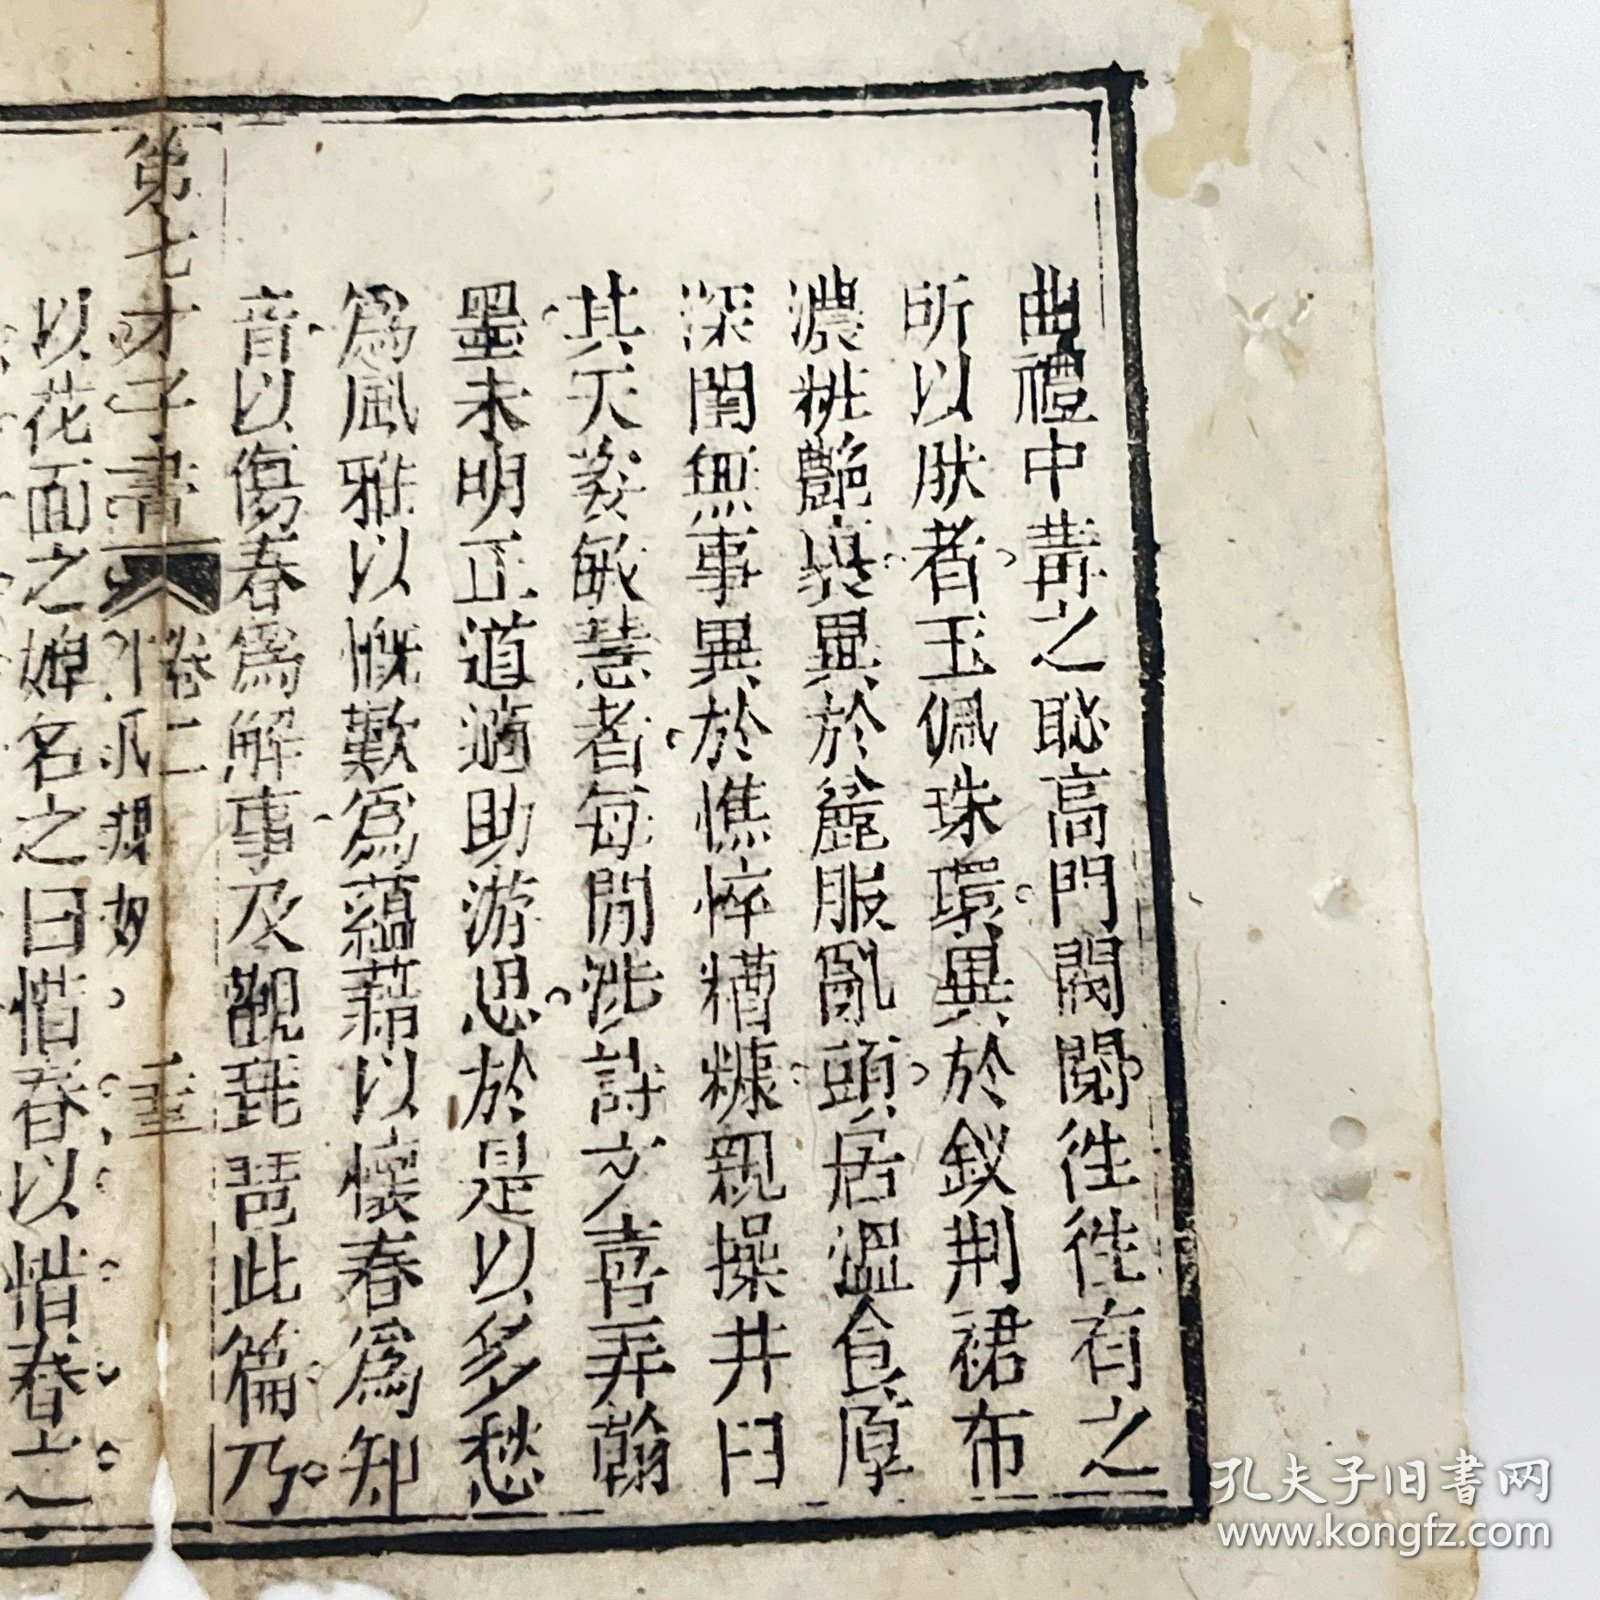 曲禮中冓之恥高門閥閱徃徃有之
所以肰者玉佩珠環異於釵荆裙布
濃粧艷裹異於麄服亂頭居溫食厚
深閨無事異於憔悴糟糠親操井臼
其天姿敏慧者每閒涉詩文喜弄翰
墨未明正道適助游思於是以多愁
為風雅以慨歎為蘊藉以懷春為知
音以傷春為解事及觀琵琶此篇乃
第七才子書
卷二
以花面之婢名之曰惜春以惜春之
孔夫子旧書网
www.kongfz.com